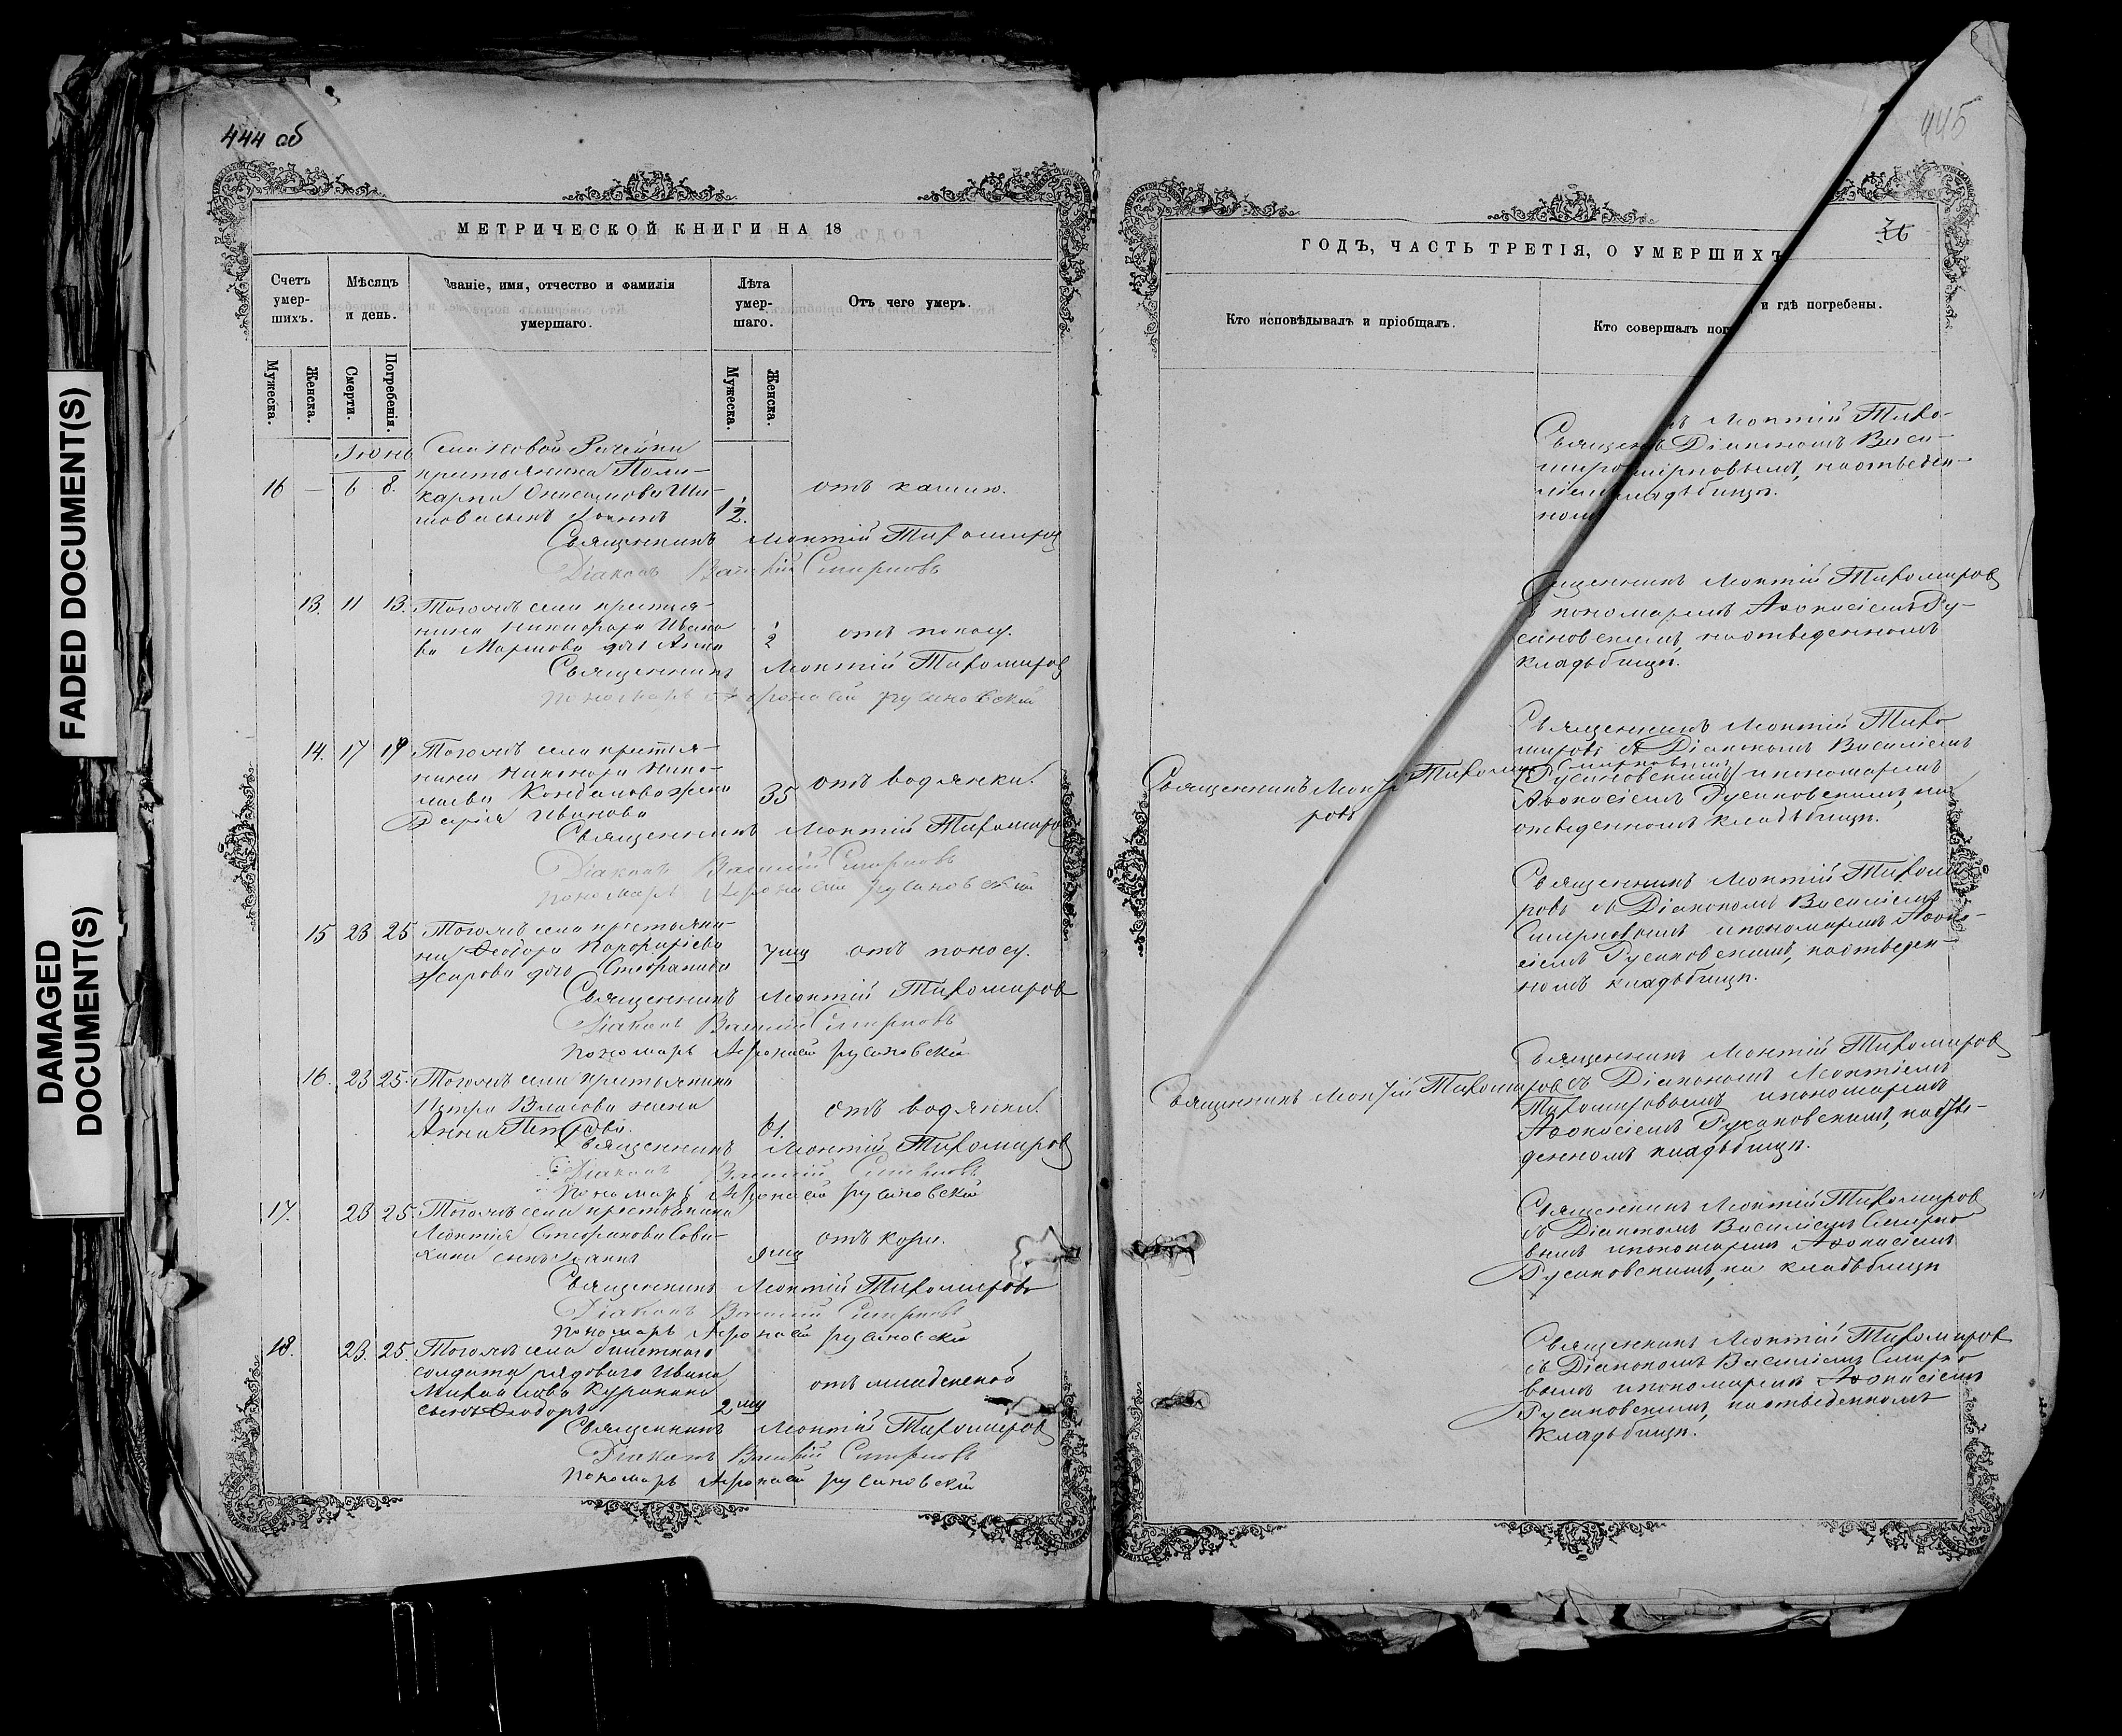 444 об
МЕТРИЧЕСКОЙ КНИГИ НА 18
Счетъ умер-шихъ.
Мѣсяцъ и день.
Званіе, имя, отчество и фамилія умершаго.
Лѣта умер-шаго.
Отъ чего умеръ.
Мужеска.
Женска.
Смерти.
Погребенія.
Мужеска.
Женска.
Іюнь
Села Новой Рачейки
крестьянина Поли-
16 — 6 8. карпа Онисимова Ши- 1/2. отъ кашлю.
това сынъ Іоаннъ
Священникъ Леонтій Тихомировъ
Діаконъ Василій Смирновъ
13. 11 13. Тогоже села крестья-
нина Никифора Ивано 1/2 отъ поносу.
ва Маршова дочь Анна
Священникъ Леонтій Тихомировъ
Пономарь Афонасій Русановскій
14. 17 19 Тогоже села крестья-
нина Никонора Нико- отъ водянки.
лаева жена 35
Дарія Иванова
Священникъ Леонтій Тихомировъ
Діаконъ Василій Смирновъ
Пономарь Афонасій Русановскій
15 23 25 Тогоже села крестьяни-
на Ѳеодора Порфиріева 7 мц отъ поносу.
Жарова дочь Стефанида
Священникъ Леонтій Тихомировъ
Діаконъ Василій Смирновъ
Пономарь Афонасій Русановскій
16. 23 25. Тогоже села крестьянина
Петра Власова жена отъ водянки.
Анна Петрова. 61.
Священникъ Леонтій Тихомировъ
Діаконъ Василій Смирновъ
Пономарь Афонасій Русановскій
17. 23 25. Тогоже села крестьянина
Леонтія Стефанова Сова- отъ кори.
кина сынъ Іоаннъ 9 мц
Священникъ Леонтій Тихомировъ
Діаконъ Василій Смирновъ
Пономарь Афонасій Русановскій
18. 23. 25. Тогоже села билетнаго
солдата рядоваго Ивана отъ младенской
Михайлова Куранина
сынъ Ѳеодоръ 2 мц
Священникъ Леонтій Тихомировъ
Діаконъ Василій Смирновъ
Пономарь Афонасій Русановскій
445
ГОДЪ, ЧАСТЬ ТРЕТІЯ, О УМЕРШИХЪ
Кто исповѣдывалъ и пріобщалъ.
Кто совершалъ пог и гдѣ погребены.
ъ Леонтій Тихо-
Священ Діакономъ Васи-
кладьбищѣ.
Священникъ Леонтій Тихомировъ
съ пономаремъ Аѳонасіемъ Ру-
сановскимъ, на отведенномъ
кладьбищѣ.
Священникъ Леонтій Тихо
мировъ съ Діакономъ Василіемъ
Смирновымъ
Священникъ Леонтій Тихоми
ровъ
Русановскимъ и пономаремъ
Аѳонасіемъ Русановскимъ, на
отведенномъ кладьбищѣ.
Священникъ Леонтій Тихоми
ровъ съ Діакономъ Василіемъ
Смирновымъ и пономаремъ Аѳона-
сіемъ Русановскимъ, на отведен-
номъ кладьбищѣ.
Священникъ Леонтій Тихомировъ
Священникъ Леонтій Тихомировъ
съ Діакономъ Леонтіемъ
Тихомировымъ и пономаремъ
Аѳонасіемъ Русановскимъ, на отве-
денномъ кладьбищѣ.
Священникъ Леонтій Тихомировъ
съ Діакономъ Василіемъ Смирно
вымъ и пономаремъ Аѳонасіемъ
Русановскимъ, на кладьбищѣ
Священникъ Леонтій Тихомировъ
съ Діакономъ Василіемъ Смирно
вымъ и пономаремъ Аѳонасіемъ
Русановскимъ, на отведенномъ
кладьбищѣ.
FADED DOCUMENT(S)
DAMAGED
DOCUMENT(S)